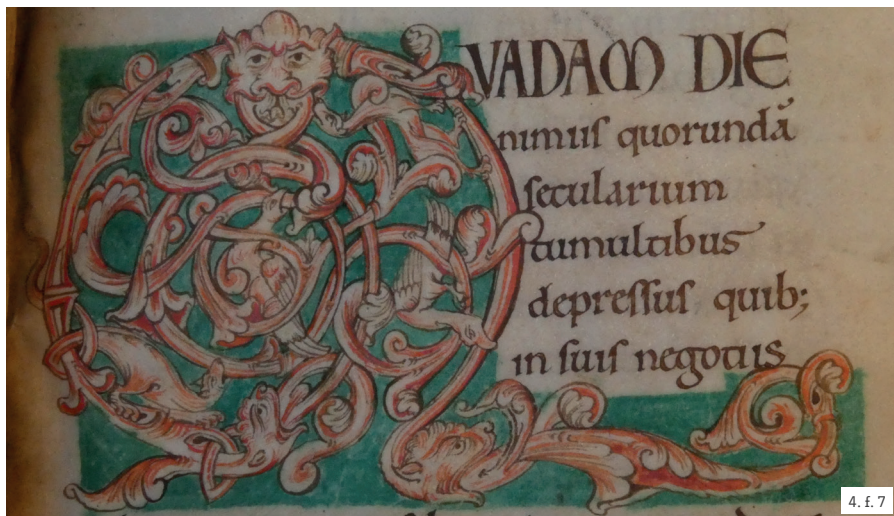 QVADAM DIE
nimiis quorundā
secularium
tumultibus
depressus quib;
in suis negotiis
4. f. 7